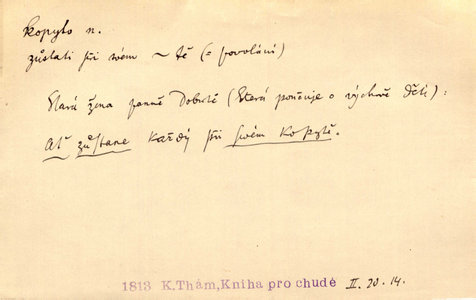 kopyto n.
zůstati při svém ~ tě (= povolání)
Stará žena panně Dobrotě (která poučuje o výchově dětí):
Ať zůstane každý při svém kopytě.
1813 K.Thám,Kniha pro chudé II. 20. 14.